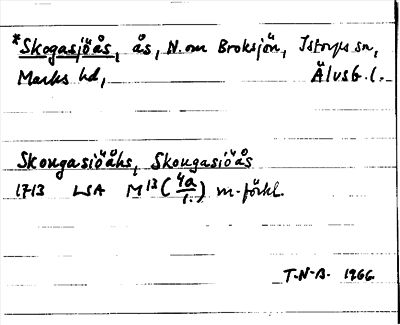 *Skogasjöås, ås, N. om Broksjön, Istorps sn,
Marks hd, Älvsb. l.
Skougasiöåhs, Skougasiöås
1713 LSA M 13 (4a/1.) m. förkl.
T.N.B. 1966